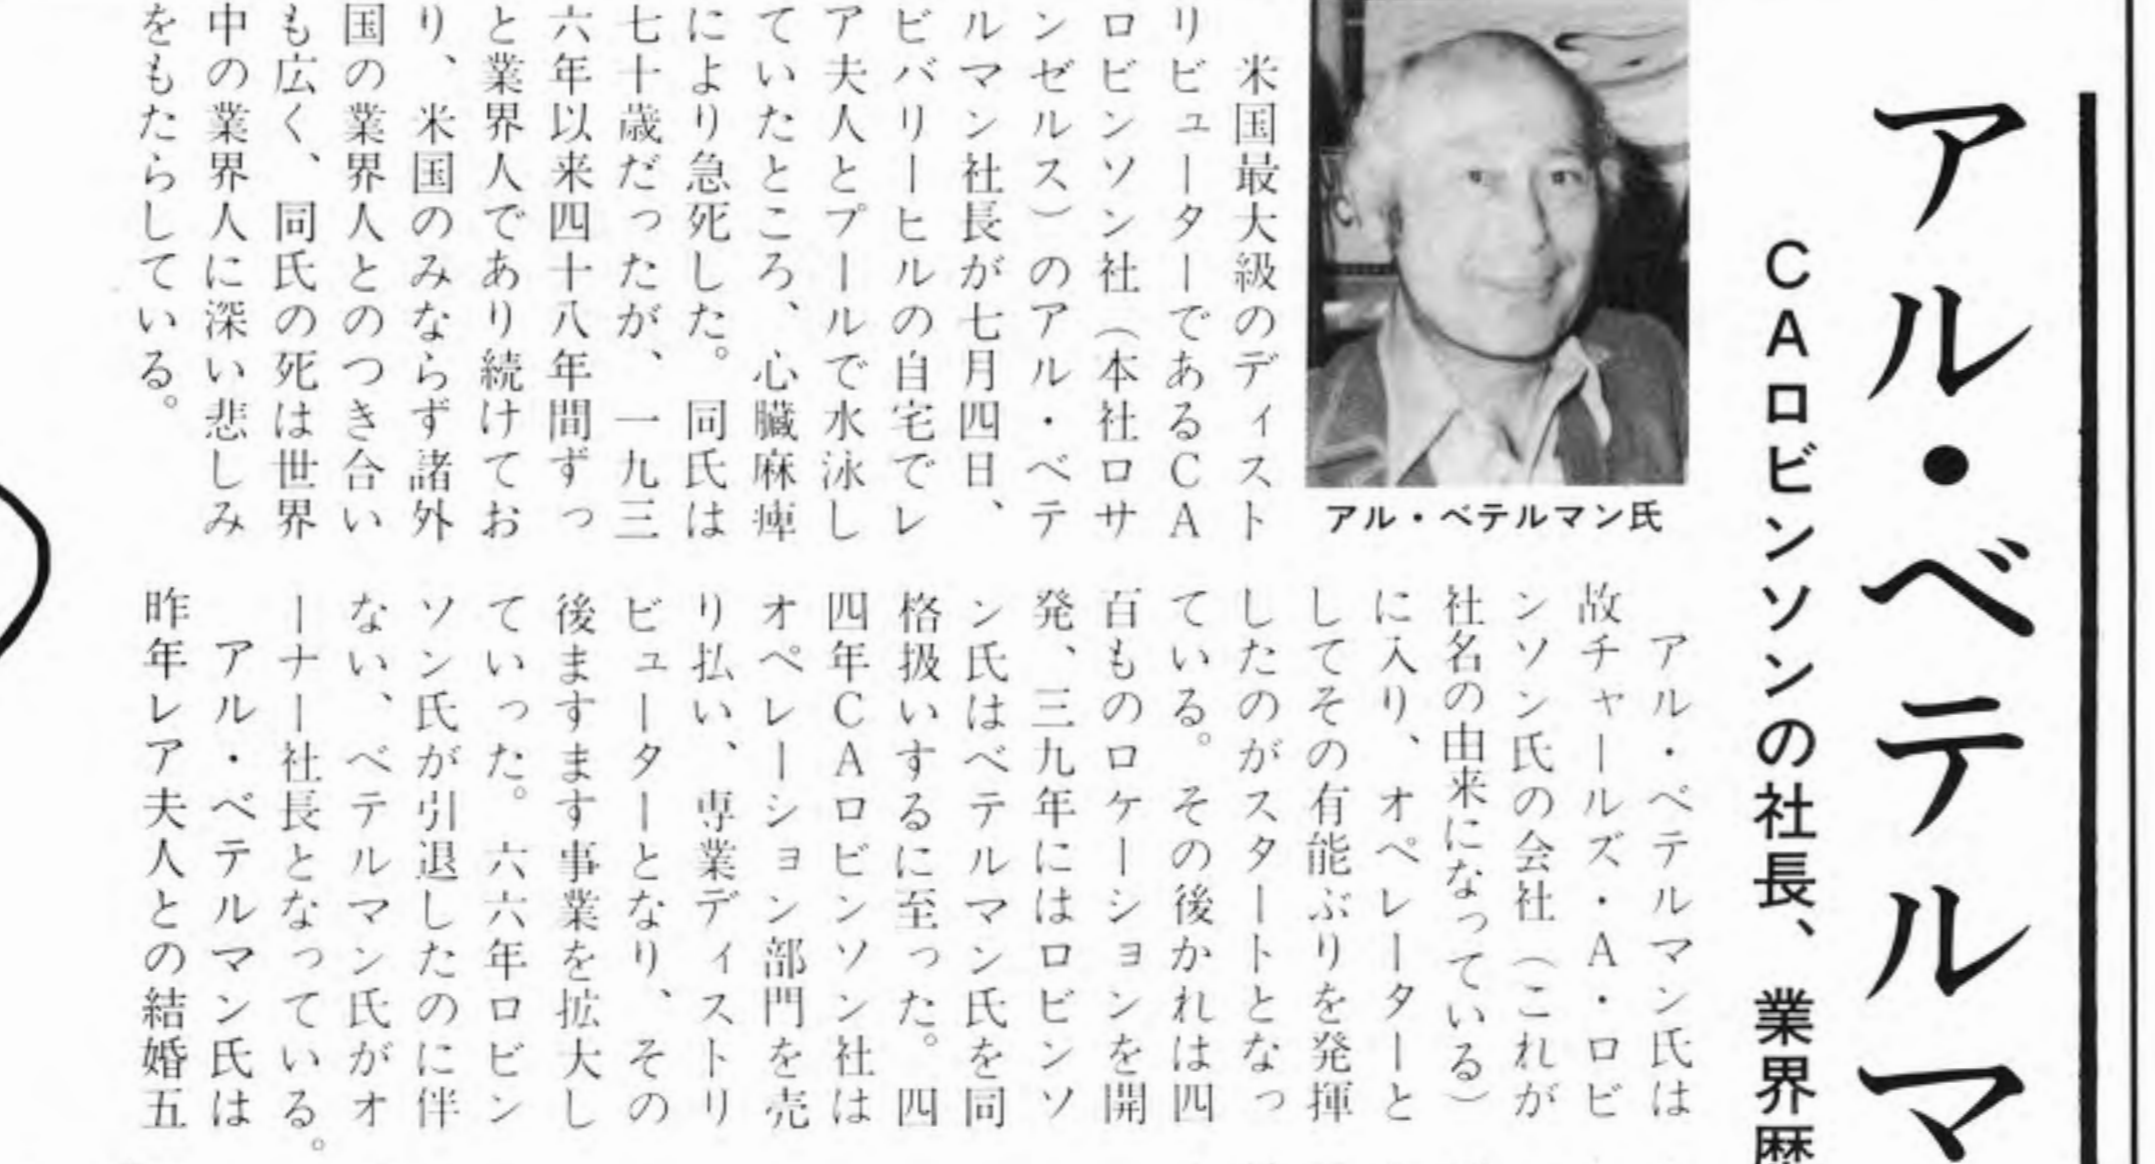 アル・ベテルマ
CAロビンソンの社長、業界歴
アル・ベテルマン氏
米国最大級のディスト
リビューターであるCA
ロビンソン社（本社ロサ
ンゼルス）のアル・ベテ
ルマン社長が七月四日、
ビバリーヒルの自宅でレ
ア夫人とプールで水泳し
ていたところ、心臓麻痺
により急死した。同氏は
七十歳だったが、一九三
六年以来四十八年間ずっ
と業界人であり続けてお
り、米国のみならず諸外
国の業界人とのつき合い
も広く、同氏の死は世界
中の業界人に深い悲しみ
をもたらしている。
アル・ベテルマン氏は
故チャールズ・A・ロビ
ンソン氏の会社（これが
社名の由来になっている）
に入り、オペレーターと
してその有能ぶりを発揮
したのがスタートとなっ
ている。その後かれは四
百ものロケーションを開
発、三九年にはロビンソ
ン氏はベテルマン氏を同
格扱いするに至った。四
四年CAロビンソン社は
オペレーション部門を売
り払い、専業ディストリ
ビューターとなり、その
後ますます事業を拡大し
ていった。六六年ロビン
ソン氏が引退したのに伴
ない、ベテルマン氏がオ
ーナー社長となっている。
アル・ベテルマン氏は
昨年レア夫人との結婚五